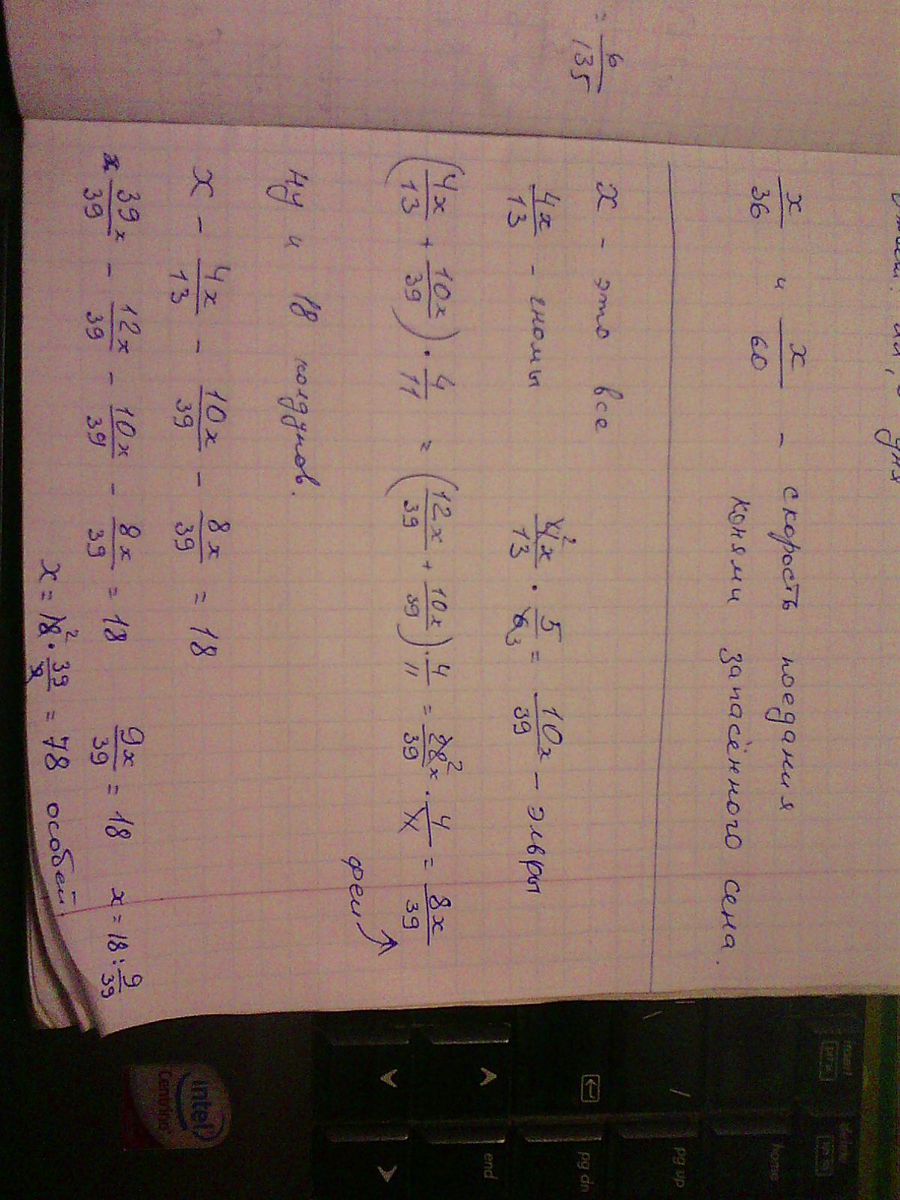 = 6/135
x/36 и x/60 - скорость поедания
конями запасённого сена.
x - это все
4x/13 - гномы 4²x/13 · 5/6₃ = 10x/39 - эльвры
(4x/13 + 10x/39) · 4/11 = (12x/39 + 10x/39) · 4/11 = 28²x/39 · 4/11 = 8x/39
феи
Ну и 18 колдунов.
x - 4x/13 - 10x/39 - 8x/39 = 18
39x/39 - 12x/39 - 10x/39 - 8x/39 = 18 9x/39 = 18 x = 18 : 9/39
x = 18² · 39/9 = 78 особей.
intel
Centrino
home
pg up
pg dn
end